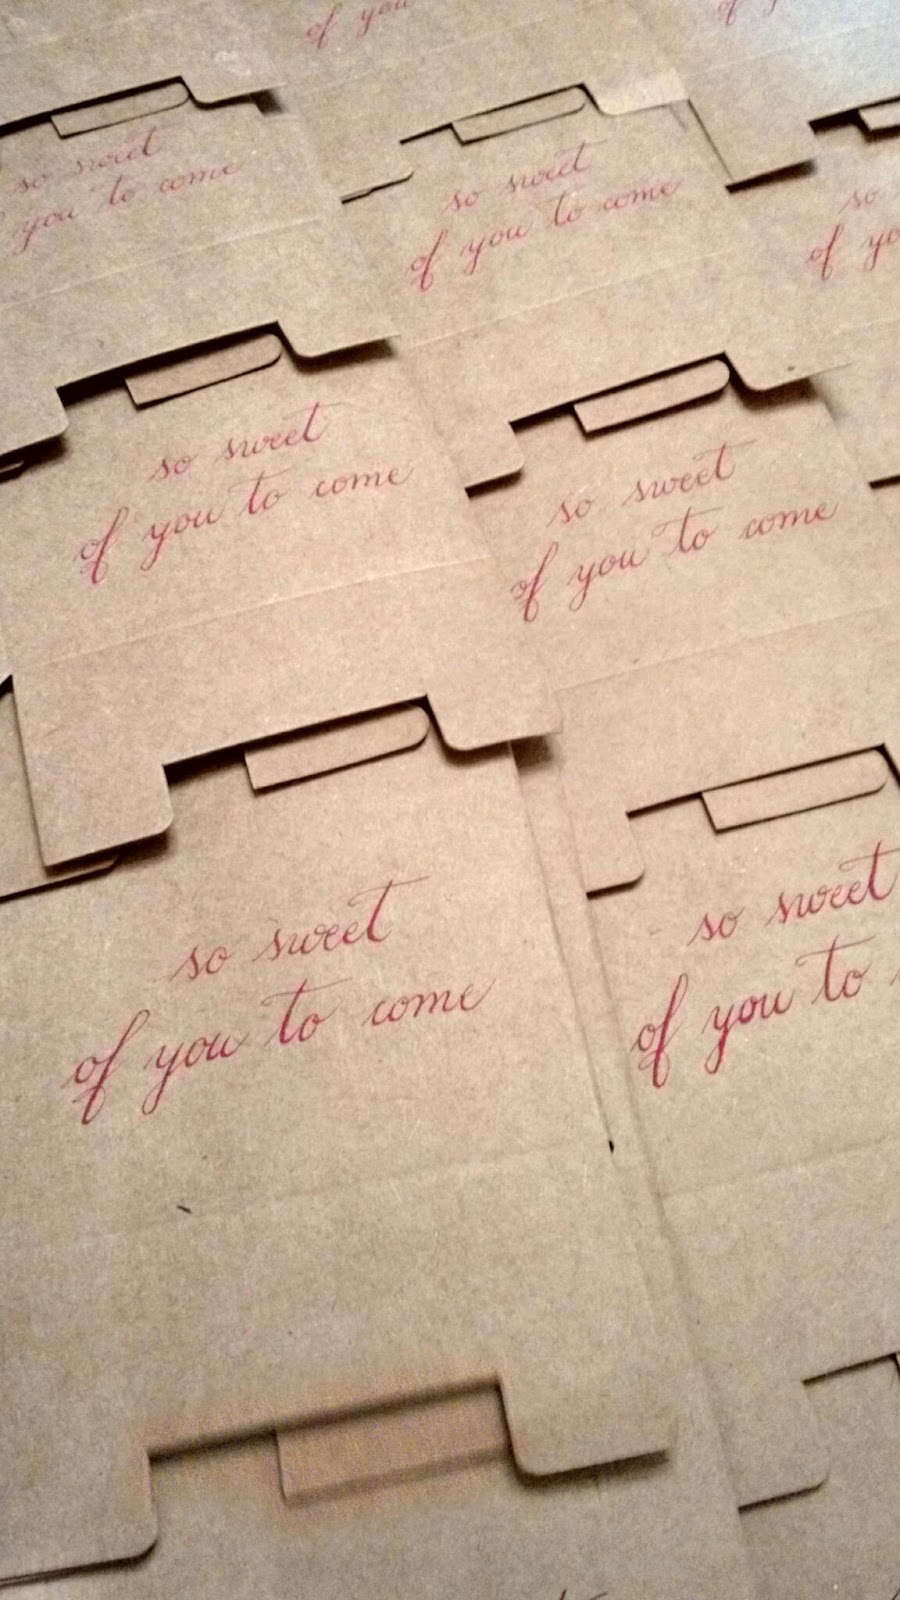 of you
so sweet
of you to come
so sweet
of you to come
so
of yo
so sweet
of you to come
so sweet
of you to come
so sweet
of you to come
so sweet
of you to